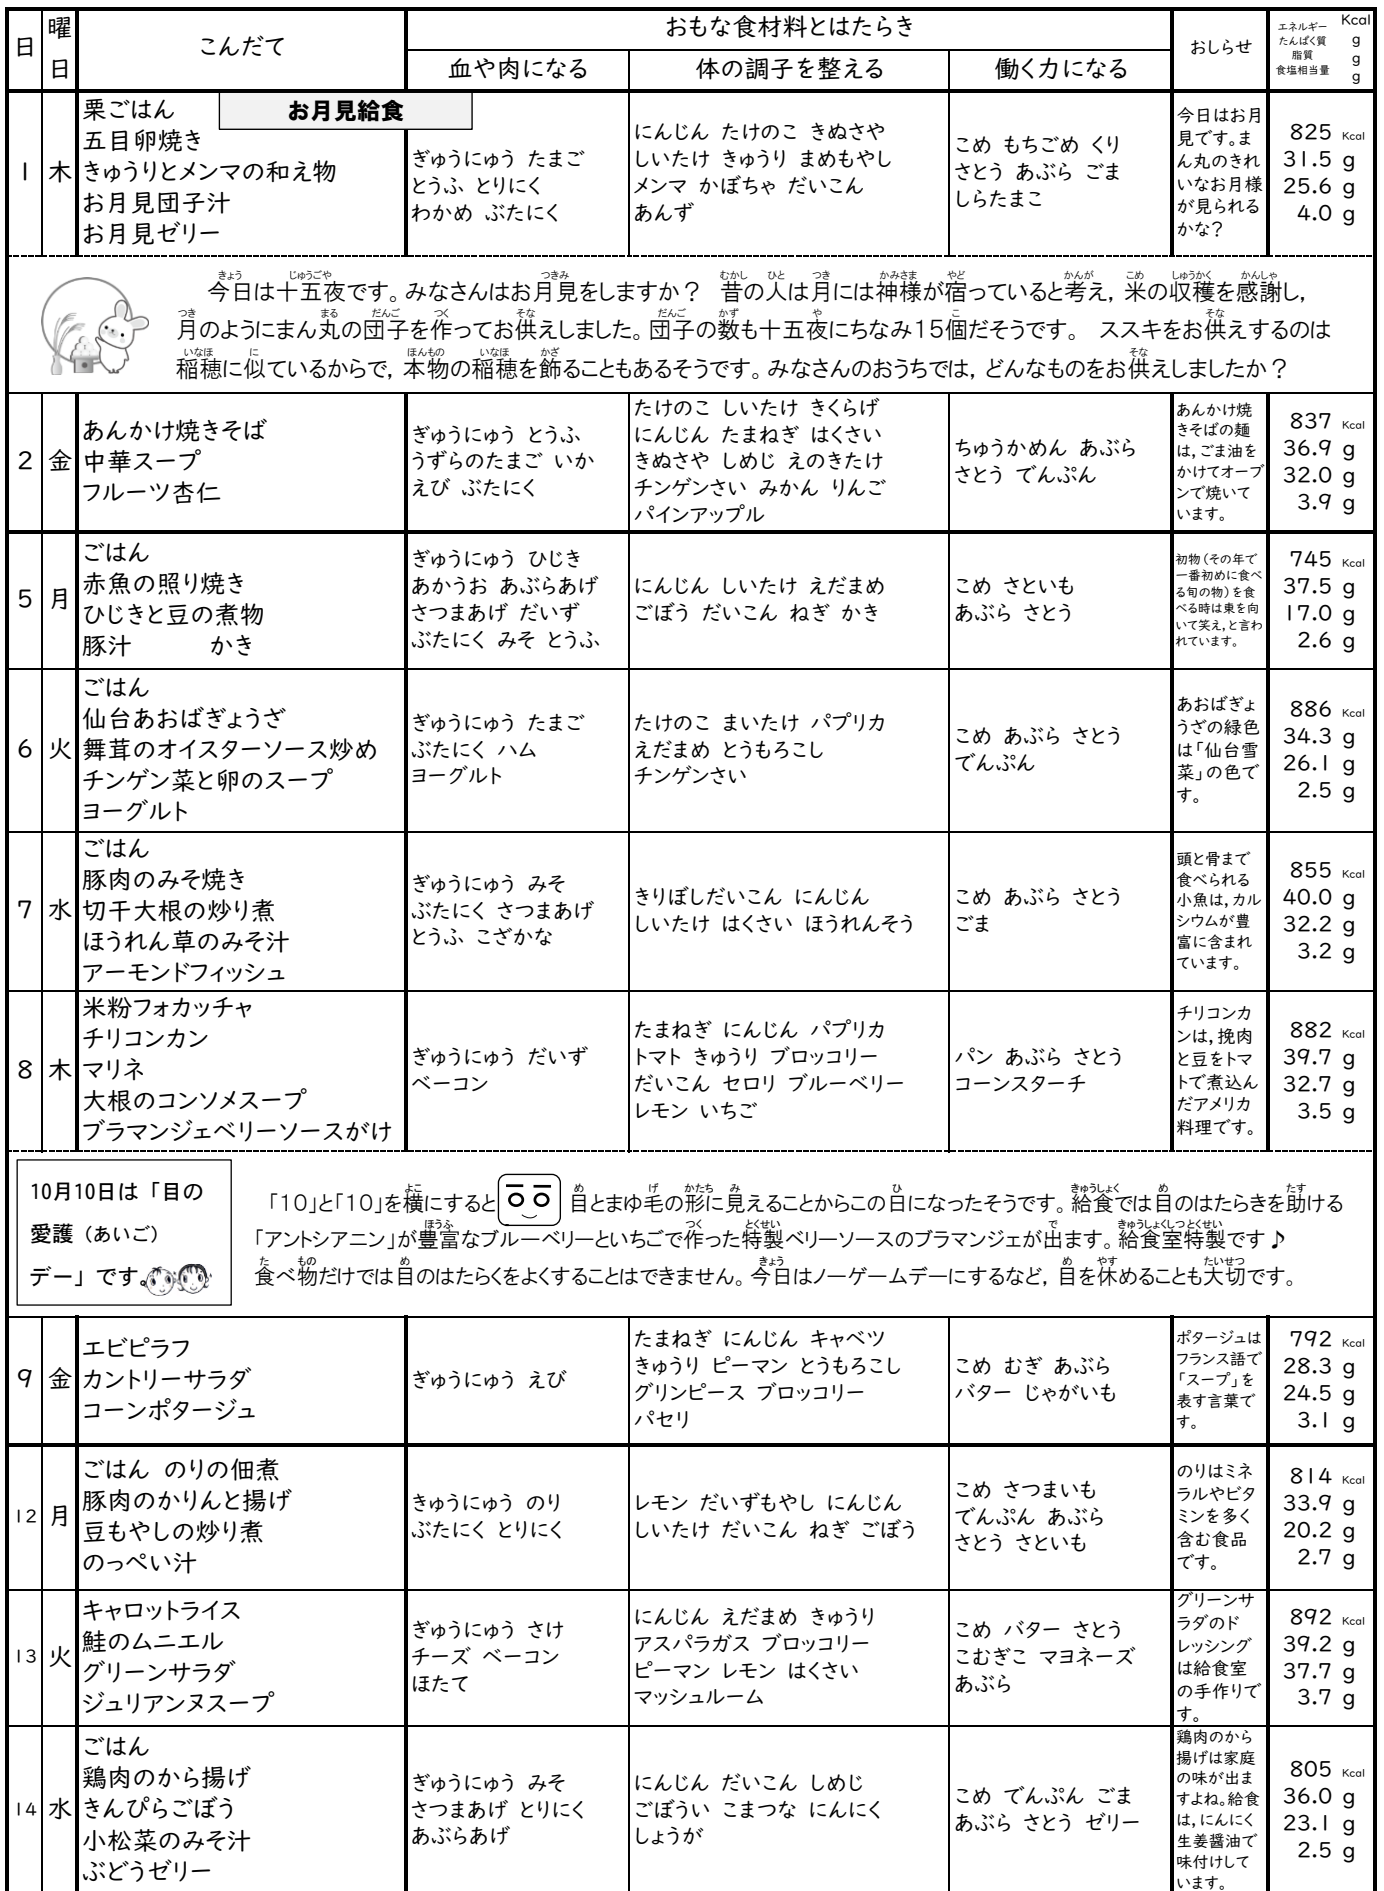 日 曜日 こんだて おもな食材料とはたらき おしらせ エネルギー Kcal
たんぱく質 g
脂質 g
食塩相当量 g
血や肉になる 体の調子を整える 働く力になる
1 木
お月見給食
栗ごはん
五目卵焼き
きゅうりとメンマの和え物
お月見団子汁
お月見ゼリー
ぎゅうにゅう たまご
とうふ とりにく
わかめ ぶたにく
にんじん たけのこ きぬさや
しいたけ きゅうり まめもやし
メンマ かぼちゃ だいこん
あんず
こめ もちごめ くり
さとう あぶら ごま
しらたまこ
今日はお月
見です。ま
ん丸のきれ
いなお月様
が見られる
かな?
825 Kcal
31.5 g
25.6 g
4.0 g
今日は十五夜です。みなさんはお月見をしますか? 昔の人は月には神様が宿っていると考え,米の収穫を感謝し,
月のようにまん丸の団子を作ってお供えしました。団子の数も十五夜にちなみ15個だそうです。 ススキをお供えするのは
稲穂に似ているからで,本物の稲穂を飾ることもあるそうです。みなさんのおうちでは,どんなものをお供えしましたか?
2 金
あんかけ焼きそば
中華スープ
フルーツ杏仁
ぎゅうにゅう とうふ
うずらのたまご いか
えび ぶたにく
たけのこ しいたけ きくらげ
にんじん たまねぎ はくさい
きぬさや しめじ えのきたけ
チンゲンさい みかん りんご
パインアップル
ちゅうかめん あぶら
さとう でんぷん
あんかけ焼
きそばの麺
は,ごま油を
かけてオーブ
ンで焼いて
います。
837 Kcal
36.9 g
32.0 g
3.9 g
5 月
ごはん
赤魚の照り焼き
ひじきと豆の煮物
豚汁 かき
ぎゅうにゅう ひじき
あかうお あぶらあげ
さつまあげ だいず
ぶたにく みそ とうふ
にんじん しいたけ えだまめ
ごぼう だいこん ねぎ かき
こめ さといも
あぶら さとう
初物(その年で
一番初めに食べ
る旬の物)を食
べる時は東を向
いて笑え,と言わ
れています。
745 Kcal
37.5 g
17.0 g
2.6 g
6 火
ごはん
仙台あおばぎょうざ
舞茸のオイスターソース炒め
チンゲン菜と卵のスープ
ヨーグルト
ぎゅうにゅう たまご
ぶたにく ハム
ヨーグルト
たけのこ まいたけ パプリカ
えだまめ とうもろこし
チンゲンさい
こめ あぶら さとう
でんぷん
あおばぎょ
うざの緑色
は「仙台雪
菜」の色で
す。
886 Kcal
34.3 g
26.1 g
2.5 g
7 水
ごはん
豚肉のみそ焼き
切干大根の炒り煮
ほうれん草のみそ汁
アーモンドフィッシュ
ぎゅうにゅう みそ
ぶたにく さつまあげ
とうふ こざかな
きりぼしだいこん にんじん
しいたけ はくさい ほうれんそう
こめ あぶら さとう
ごま
頭と骨まで
食べられる
小魚は,カル
シウムが豊
富に含まれ
ています。
855 Kcal
40.0 g
32.2 g
3.2 g
8 木
米粉フォカッチャ
チリコンカン
マリネ
大根のコンソメスープ
ブラマンジェベリーソースがけ
ぎゅうにゅう だいず
ベーコン
たまねぎ にんじん パプリカ
トマト きゅうり ブロッコリー
だいこん セロリ ブルーベリー
レモン いちご
パン あぶら さとう
コーンスターチ
チリコンカ
ンは,挽肉
と豆をトマ
トで煮込ん
だアメリカ
料理です。
882 Kcal
39.7 g
32.7 g
3.5 g
10月10日は「目の
愛護(あいご)
デー」です。
「10」と「10」を横にすると 目とまゆ毛の形に見えることからこの日になったそうです。給食では目のはたらきを助ける
「アントシアニン」が豊富なブルーベリーといちごで作った特製ベリーソースのブラマンジェが出ます。給食室特製です♪
食べ物だけでは目のはたらくをよくすることはできません。今日はノーゲームデーにするなど,目を休めることも大切です。
9 金
エビピラフ
カントリーサラダ
コーンポタージュ
ぎゅうにゅう えび
たまねぎ にんじん キャベツ
きゅうり ピーマン とうもろこし
グリンピース ブロッコリー
パセリ
こめ むぎ あぶら
バター じゃがいも
ポタージュは
フランス語で
「スープ」を
表す言葉で
す。
792 Kcal
28.3 g
24.5 g
3.1 g
12 月
ごはん のりの佃煮
豚肉のかりんと揚げ
豆もやしの炒り煮
のっぺい汁
きゅうにゅう のり
ぶたにく とりにく
レモン だいずもやし にんじん
しいたけ だいこん ねぎ ごぼう
こめ さつまいも
でんぷん あぶら
さとう さといも
のりはミネ
ラルやビタ
ミンを多く
含む食品
です。
814 Kcal
33.9 g
20.2 g
2.7 g
13 火
キャロットライス
鮭のムニエル
グリーンサラダ
ジュリアンヌスープ
ぎゅうにゅう さけ
チーズ ベーコン
ほたて
にんじん えだまめ きゅうり
アスパラガス ブロッコリー
ピーマン レモン はくさい
マッシュルーム
こめ バター さとう
こむぎこ マヨネーズ
あぶら
グリーンサ
ラダのド
レッシング
は給食室
の手作りで
す。
892 Kcal
39.2 g
37.7 g
3.7 g
14 水
ごはん
鶏肉のから揚げ
きんぴらごぼう
小松菜のみそ汁
ぶどうゼリー
ぎゅうにゅう みそ
さつまあげ とりにく
あぶらあげ
にんじん だいこん しめじ
ごぼうい こまつな にんにく
しょうが
こめ でんぷん ごま
あぶら さとう ゼリー
鶏肉のから
揚げは家庭
の味が出ま
すよね。給食
は,にんにく
生姜醤油で
味付けして
います。
805 Kcal
36.0 g
23.1 g
2.5 g